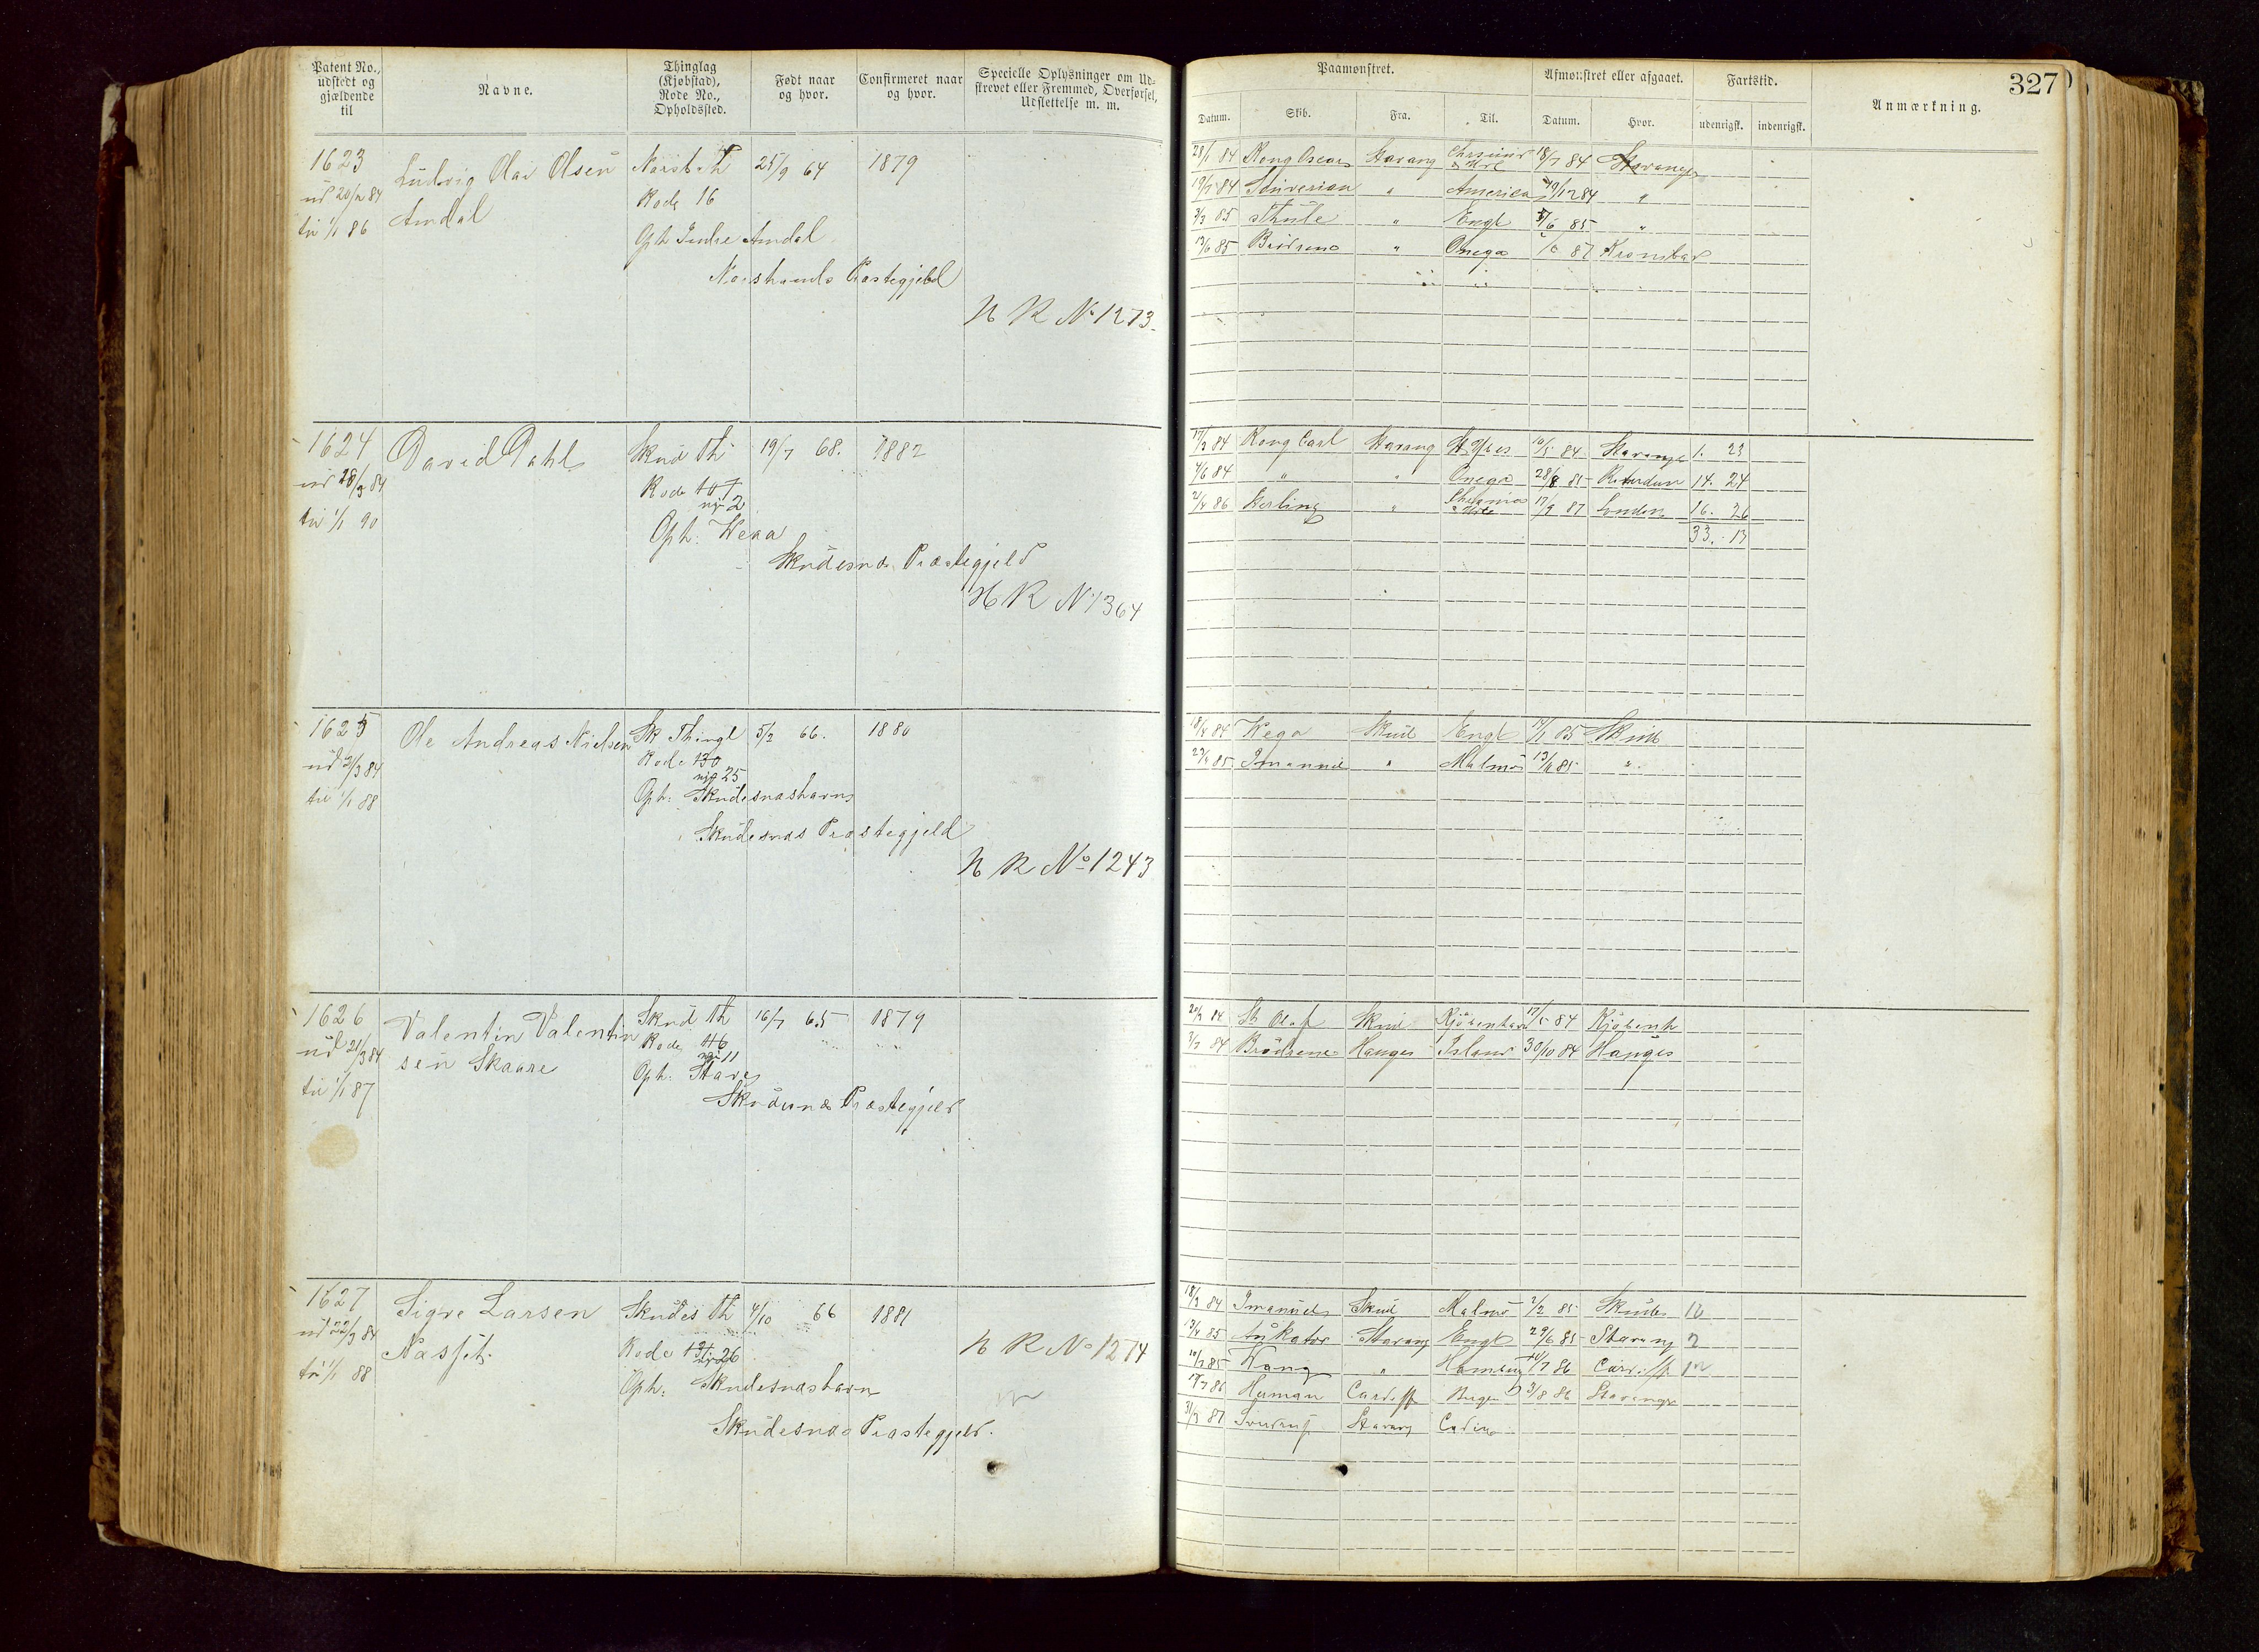 Patent No.,
udstedt og
gjældende
til
Navne.
Thinglag
(Kjøbstad),
Rode No.,
Opholdssted.
Født naar
og hvor.
Confirmeret naar
og hvor.
Specielle Oplysninger om Ud-
skrevet eller Fremmed, Overførsel,
Udslettelse m. m.
1623
ud 20/2 84
til 1/1 86
Ludvig Olai Olsen
Amdal
Narst Th
Rode 16
Oph Indre Amdal
Narstrands Præstegjeld
25/9 64
1879
H R No 1273
1624
ud 28/2 84
til 1/1 90
David Dahl
Skud Th
Rode 107
ny 2
Oph: Wera
Skudesnæs Præstegjeld
19/7 68.
1882
H R N 1364
1625
ud 2/3 84
til 1/1 88
Ole Andreas Nielsen
Sk Thingl
Rode 130
ny 25
Oph: Skudesnæshavn
Skudesnæs Præstegjeld
5/2 66.
1880
H R No 1243
1626
ud 21/3 84
til 1/1 87
Valentin Valentin
sen Skaare
Skud Th
Rode 116
ny 11
Oph: Stave
Skudesnæs Præstegjeld
16/7 65
1879
1627
ud 22/3 84
til 1/1 88
Sigve Larsen
Næsset.
Skudes Th
Rode 131 ny 26
Oph: Skudesnæshavn
Skudesnæs Præstegjeld.
4/10 66
1881
H R No 1274
327
Paamønstret.
Afmønstret eller afgaaet.
Fartstid.
Anmærkning.
Datum.
Skib.
Fra.
Til.
Datum.
Hvor.
udenrigsk.
indenrigsk.
28/1 84 Kong Oscar Stavang 18/7 84 Stavanger
19/7 84 America 19/12 84 "
3/3 85 Thule " Engl 85 "
13/6 85 Brødrene " Onega 87
17/3 84 Kong Carl Stavang 10/5 84 Stavange 1. 23
7/6 84 " " Onega 28/8 85 14. 24
21/4 86 Sterling " 17/9 87 London 16. 26
33. 13
18/4 84 Wega Skud Engl 14/1 85 Skud
27/4 85 Imanuel " Malmø 13/6 85 "
20/3 84 St Olaf Skud Kjøbenhavn 17/5 84 Kjøbenh
2/7 84 Brødrene Hauges Island 30/10 84 Hauges
18/3 84 Imanuel Skud Malmø 2/2 85 Skudes 10
13/4 85 Stavang Engl 29/6 85 Stavang 2
10/7 85 " Hamburg 86 Cardiff 12
17/7 86 Herman Cardiff 3/8 86 Stavanger
31/3 87 Stavang